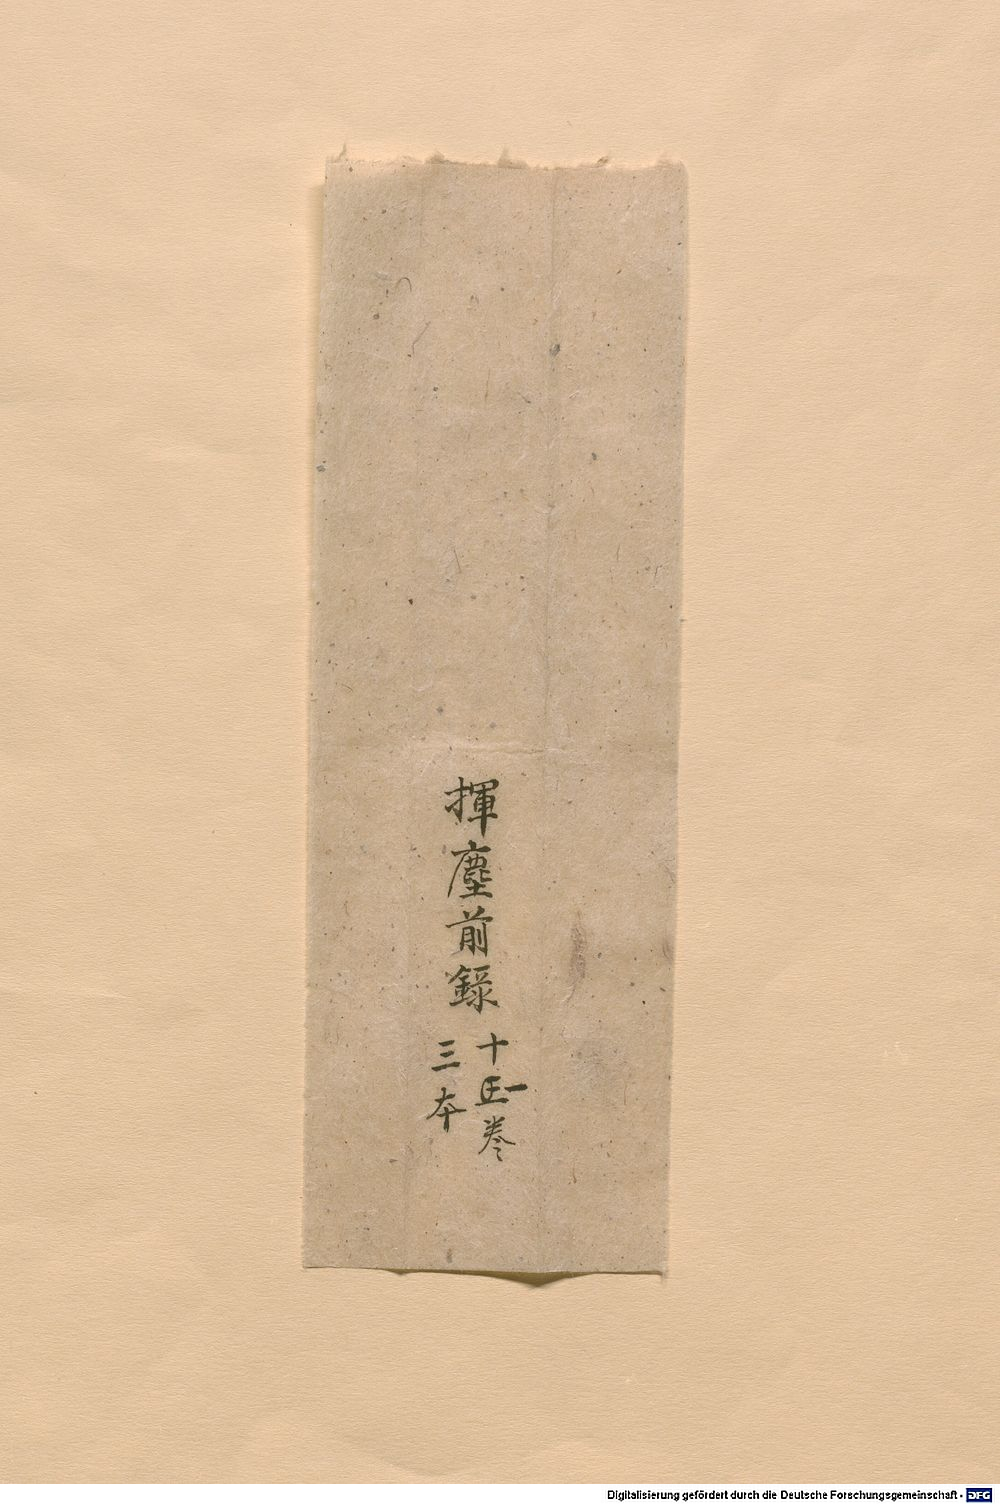 揮塵前錄
十五一卷
三本
Digitalisierung gefördert durch die Deutsche Forschungsgemeinschaft - DFG